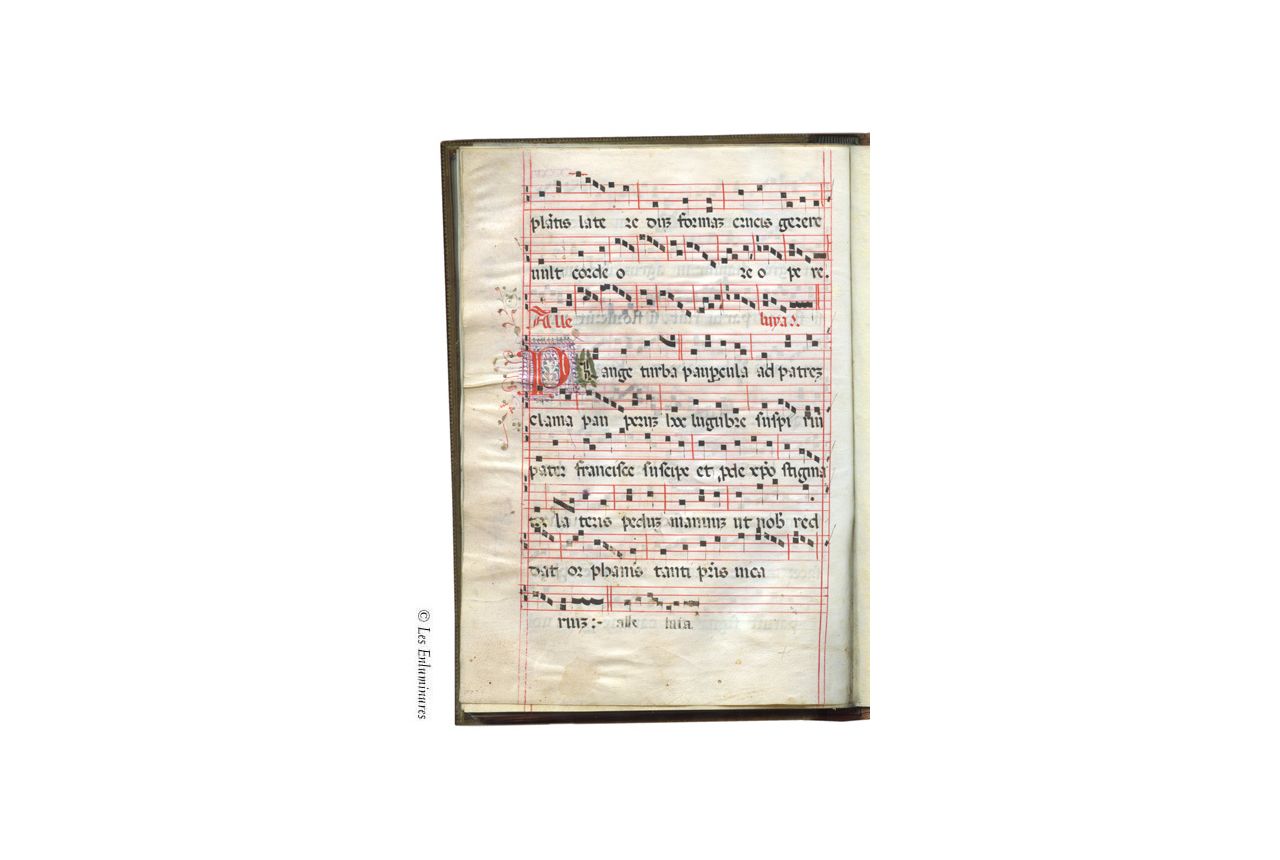 plātis late re duꝫ formaꝫ crucis gerere
uult corde o re o pe re.
Alle luya :.
P Lange turba paupercula ad patreꝫ
clama pau peruꝫ hec lugubre suspi riū
pater francisce suscipe et p̄de xp̄o stigma
ta la teris peduꝫ manuuꝫ ut nob̄ red
dat or phanis tanti pr̄is uica
riuꝫ :- alle luia.
© Les Enluminures